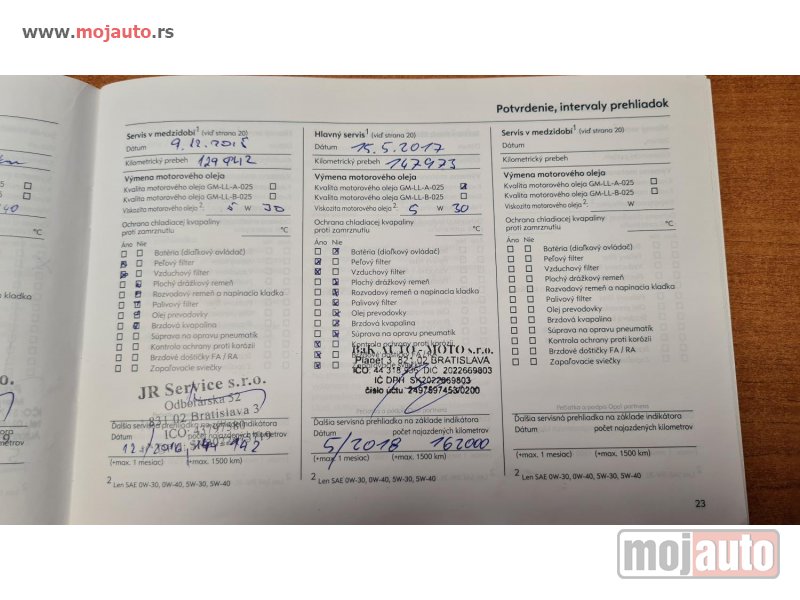 www.mojauto.rs
Potvrdenie, intervaly prehliadok
Servis v medzidobí¹ (viď strana 20)
Dátum 9.12.2015
Kilometrický prebeh 129 942
Výmena motorového oleja
Kvalita motorového oleja GM-LL-A-025
Kvalita motorového oleja GM-LL-B-025
Viskozita motorového oleja² 5 W 30
Ochrana chladiacej kvapaliny
proti zamrznutiu °C
Áno Nie
Batéria (diaľkový ovládač)
Peľový filter
Vzduchový filter
Plochý drážkový remeň
Rozvodový remeň a napinacia kladka
Palivový filter
Olej prevodovky
Brzdová kvapalina
Súprava na opravu pneumatík
Kontrola ochrany proti korózii
Brzdové doštičky FA / RA
Zapaľovacie sviečky
JR Service s.r.o.
Odborárska 52
831 02 Bratislava 3
Ďalšia servisná prehliadka na základe indikátora
Dátum počet najazdených kilometrov
(+max. 1 mesiac) (+max. 1500 km)
² Len SAE 0W-30, 0W-40, 5W-30, 5W-40
Hlavný servis¹ (viď strana 20)
Dátum 15.5.2017
Kilometrický prebeh 147973
Výmena motorového oleja
Kvalita motorového oleja GM-LL-A-025
Kvalita motorového oleja GM-LL-B-025
Viskozita motorového oleja² 5 W 30
Ochrana chladiacej kvapaliny
proti zamrznutiu °C
Áno Nie
Batéria (diaľkový ovládač)
Peľový filter
Vzduchový filter
Plochý drážkový remeň
Rozvodový remeň a napinacia kladka
Palivový filter
Olej prevodovky
Brzdová kvapalina
Súprava na opravu pneumatík
Kontrola ochrany proti korózii
B&K AUTO - MOTO s.r.o.
Planét 3, 821 02 BRATISLAVA
DIC: 2022669803
IČ DPH: SK2022669803
číslo účtu: 2497597453/0200
Ďalšia servisná prehliadka na základe indikátora
Dátum počet najazdených kilometrov
5/2018 162000
(+max. 1 mesiac) (+max. 1500 km)
² Len SAE 0W-30, 0W-40, 5W-30, 5W-40
Servis v medzidobí¹ (viď strana 20)
Dátum
Kilometrický prebeh
Výmena motorového oleja
Kvalita motorového oleja GM-LL-A-025
Kvalita motorového oleja GM-LL-B-025
Viskozita motorového oleja² W
Ochrana chladiacej kvapaliny
proti zamrznutiu °C
Áno Nie
Batéria (diaľkový ovládač)
Peľový filter
Vzduchový filter
Plochý drážkový remeň
Rozvodový remeň a napinacia kladka
Palivový filter
Olej prevodovky
Brzdová kvapalina
Súprava na opravu pneumatík
Kontrola ochrany proti korózii
Brzdové doštičky FA / RA
Zapaľovacie sviečky
Pečiatka a podpis Opel partnera
Ďalšia servisná prehliadka na základe indikátora
Dátum počet najazdených kilometrov
(+max. 1 mesiac) (+max. 1500 km)
² Len SAE 0W-30, 0W-40, 5W-30, 5W-40
23
mojauto